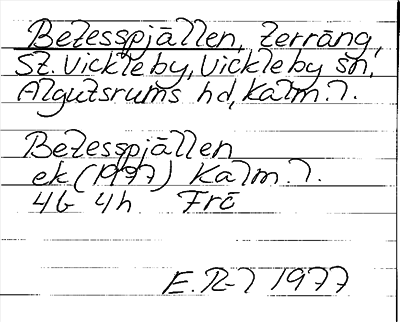 Betesspjällen, terräng,
St. Vickleby, Vickleby sn,
Algutsrums hd, Kalm. l.
Betesspjällen
ek (1977) Kalm. l.
4G 4h Frö
E. R-l 1977